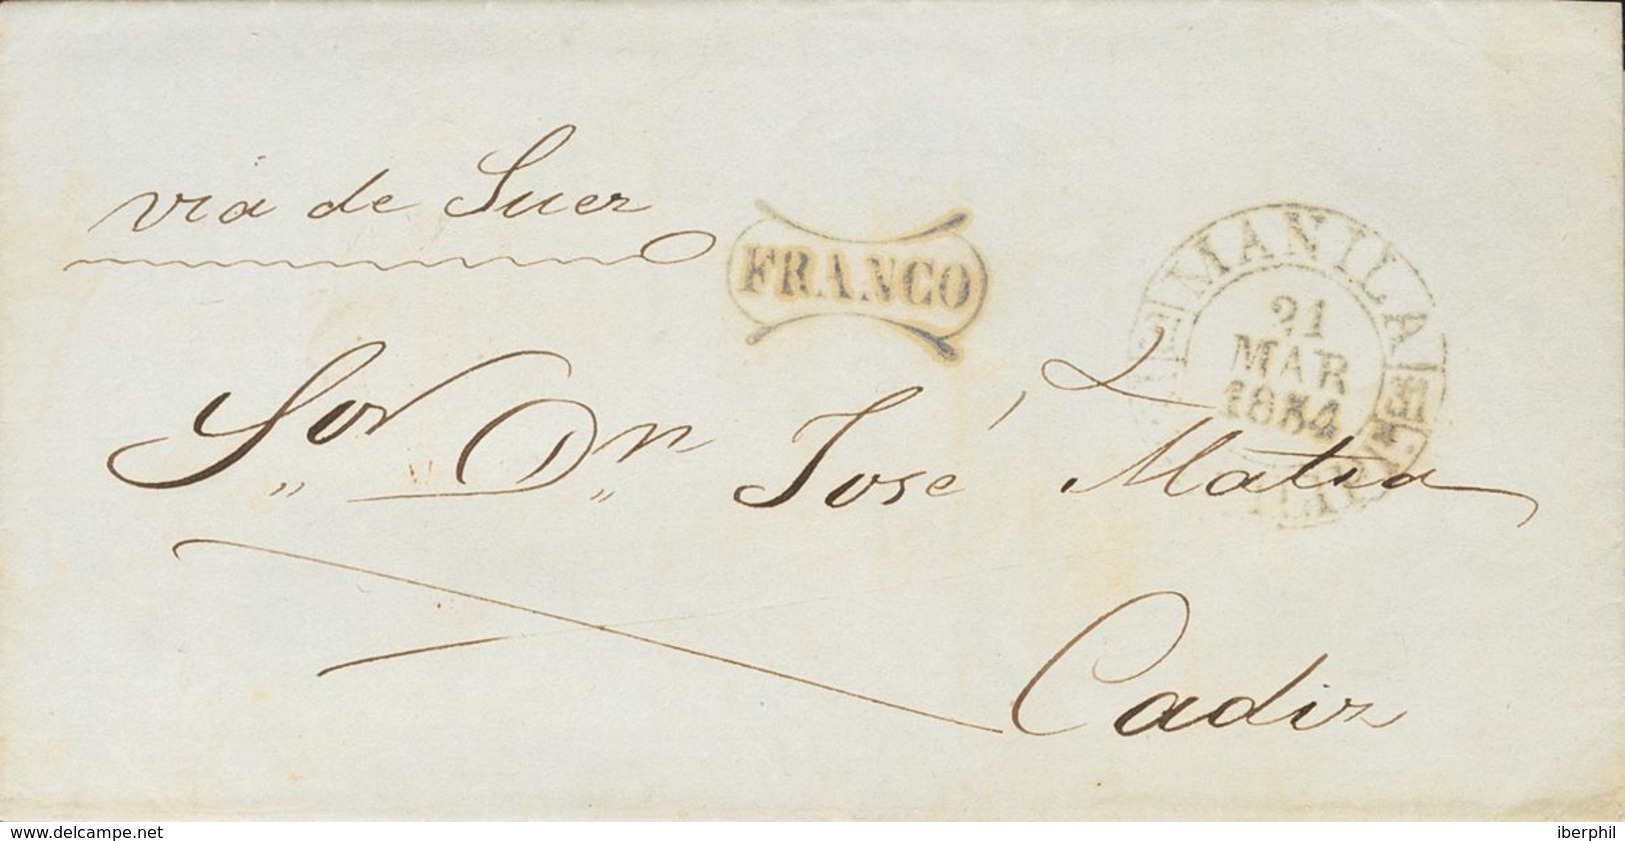 via de Suez
FRANCO
MANILA
21
MAR
1854
Sor Dn José Matia
Cadiz
www.delcampe.net
iberphil